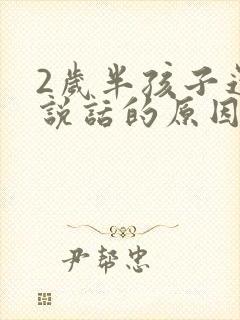 2歲半孩子
說話的原因
尹幇忠